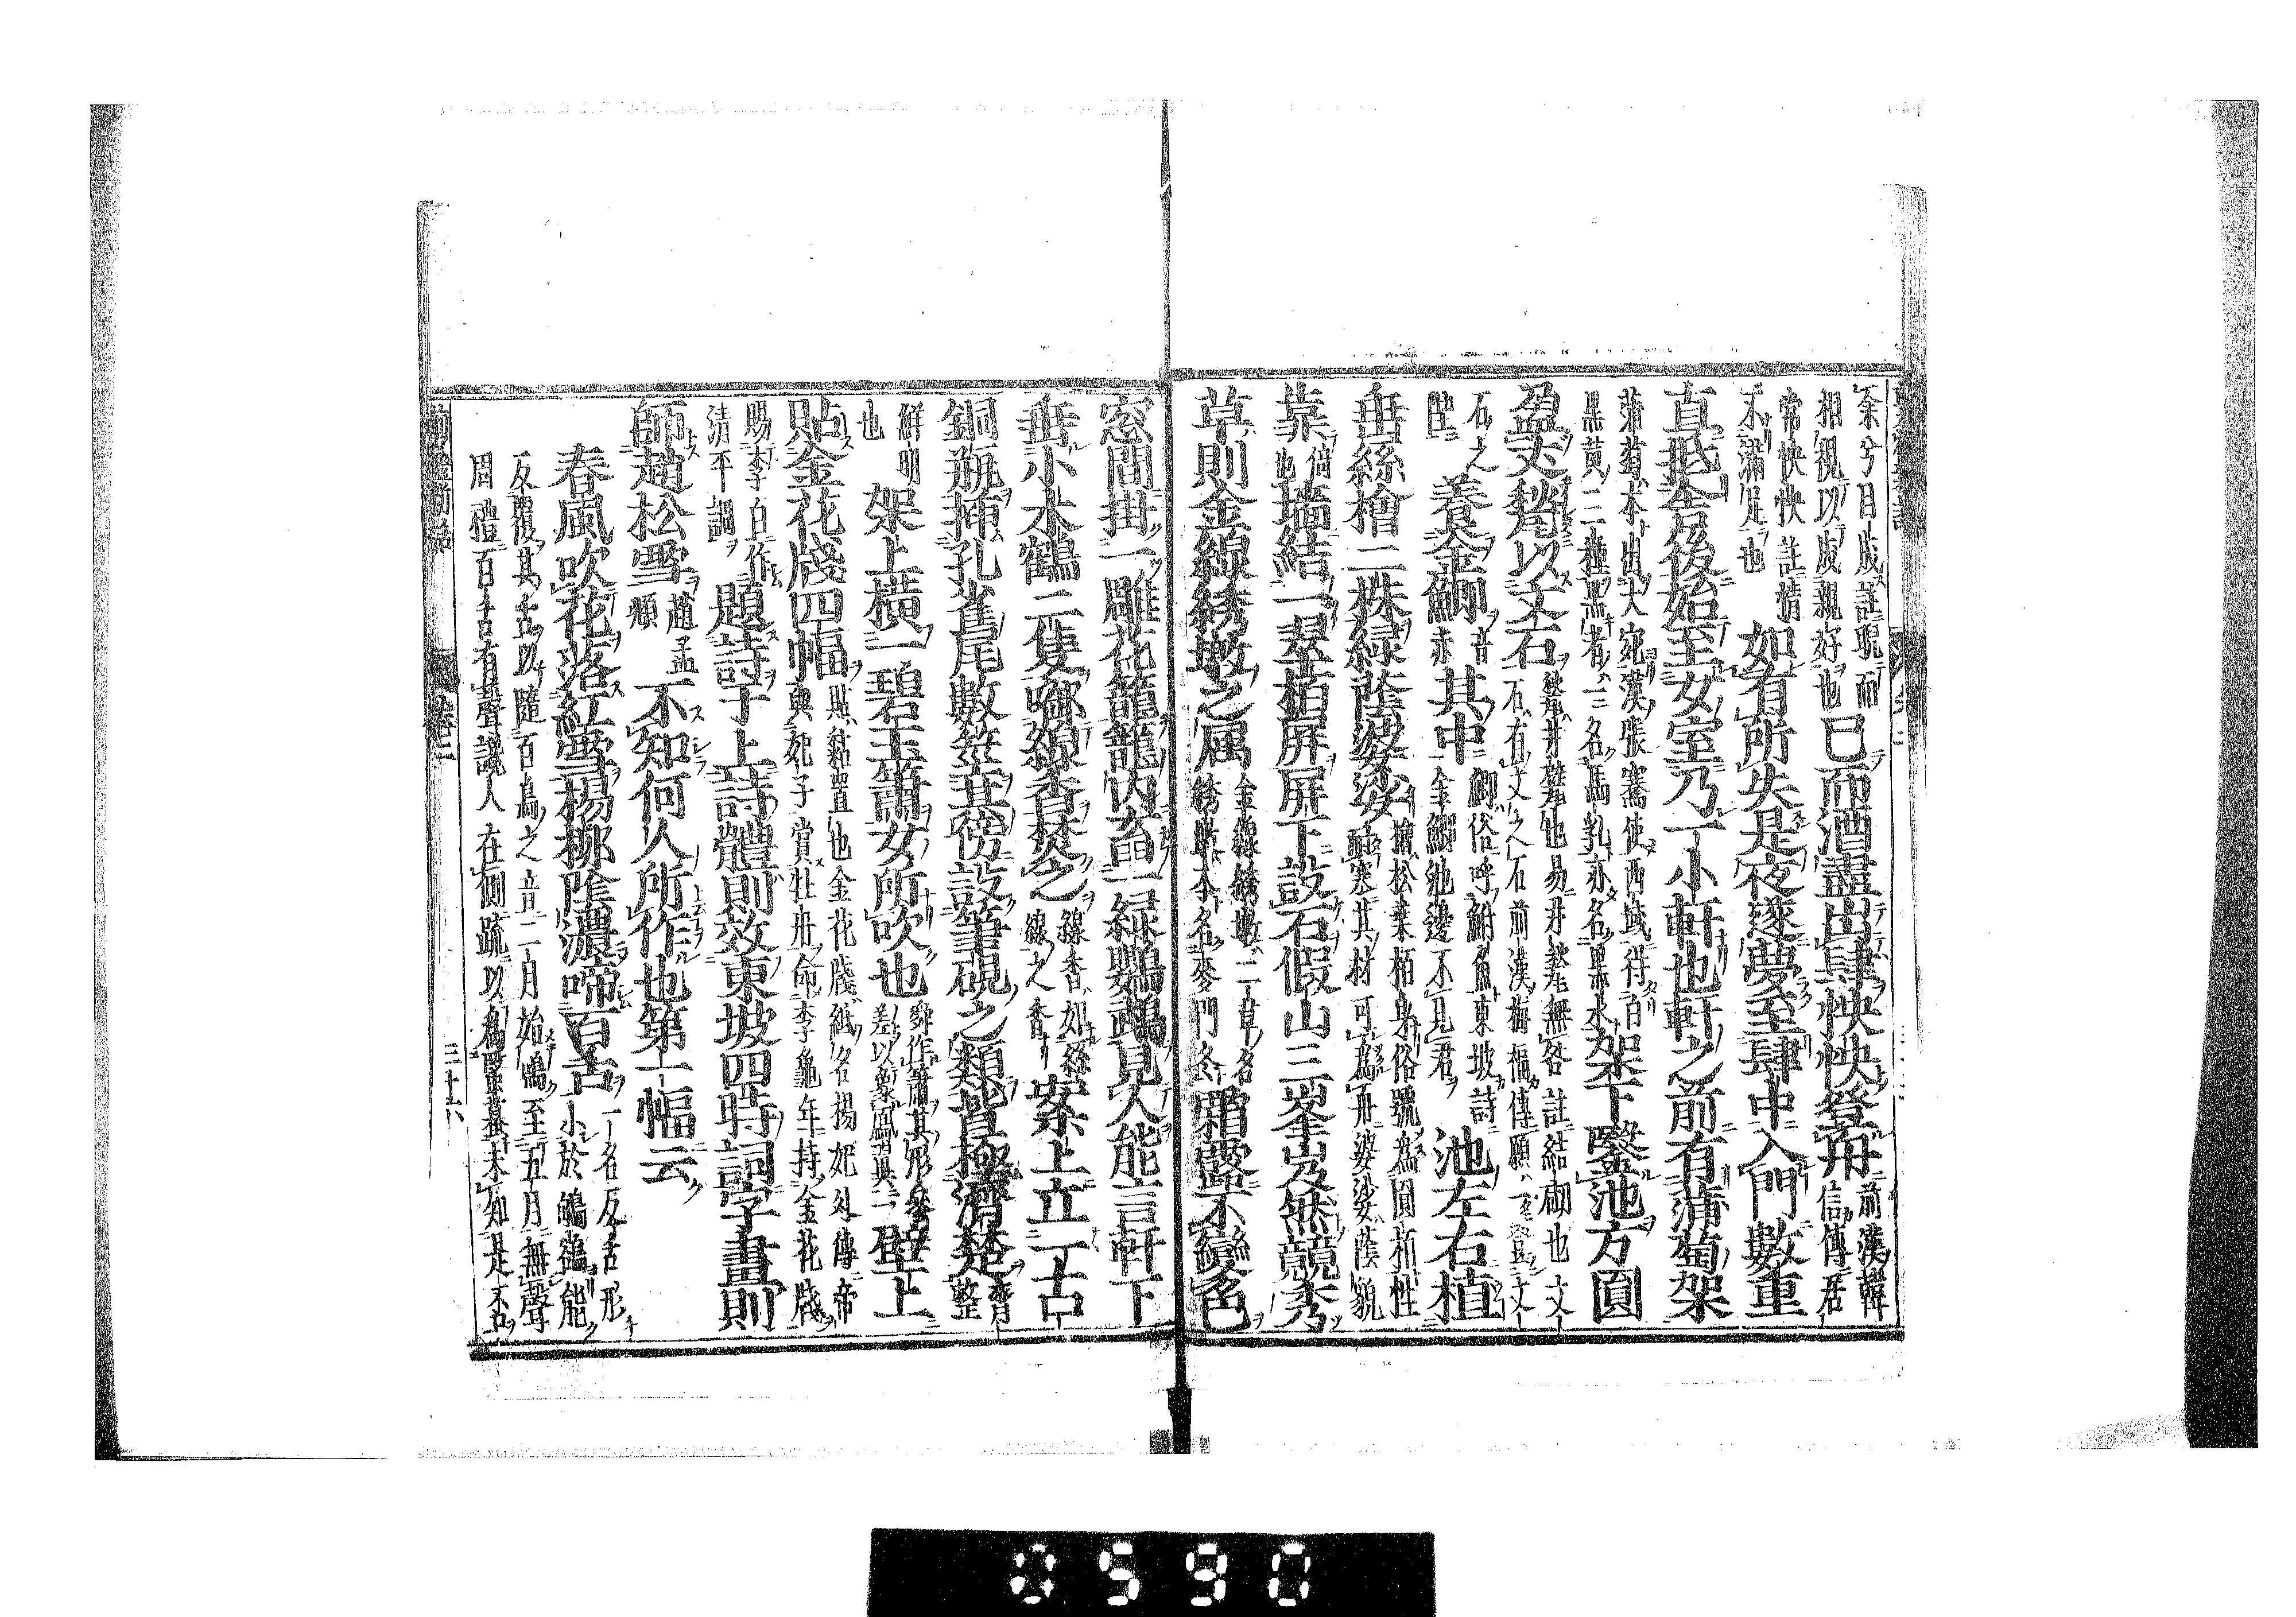 余兮目成註覗而
相視以成親好也已而酒盡出肆怏怏登舟前漢韓
信傳居
常怏怏註情
不滿足也如有所失是夜遂夢至肆中入門數重
直抵舍後始至女室乃一小軒也軒之前有蒲萄架
蒲萄本出大宛漢張騫使西域得白
黑黃二種黑者三名馬乳亦名黑水架下鑿池方圓
盈丈甃以文石甃井甓也易井甃無咎註結砌也文
石有文之石前漢梅福傳願登文
石之
陛養金鯽音
赤其中鯽俗呼鮒魚東坡詩
金鯽池邊不見君池左右植
垂絲檜二株綠蔭婆娑檜松葉栢身俗號爲圓栢性
耐寒其材可爲舟婆娑蔭貌
靠倚
也墻結一翠栢屏屏下設石假山三峯岌然競秀
草則金線綉墩之属金線綉墩二草名
綉墩本名麥門冬霜露不變色
窓間掛一雕花籠籠內畜一綠鸚鵡見人能言軒下
垂小木鶴二隻啣線香焚之線香如絲
線之香案上立一古
銅瓶揷孔雀尾數莖其傍設筆硯之類皆極濟楚齊整
鮮明
也架上橫一碧玉簫女所吹也舜作簫其形參
差以象鳳翼壁上
貼金花牋四幅貼黏置也金花牋紙名楊妃外傳帝
與妃子賞牡丹命李龜年持金花牋
賜李白作
清平調題詩于上詩體則效東坡四時詞字畫則
師趙松雪趙孟
頫不知何人所作也第一幅云
春風吹花落紅雪楊柳陰濃啼百舌一名反舌形
小於鴝鵒能
反覆其舌以隨百鳥之音二月始鳴至五月無聲
周禮百舌有聲讒人在側疏以爲
未知是否
卷二